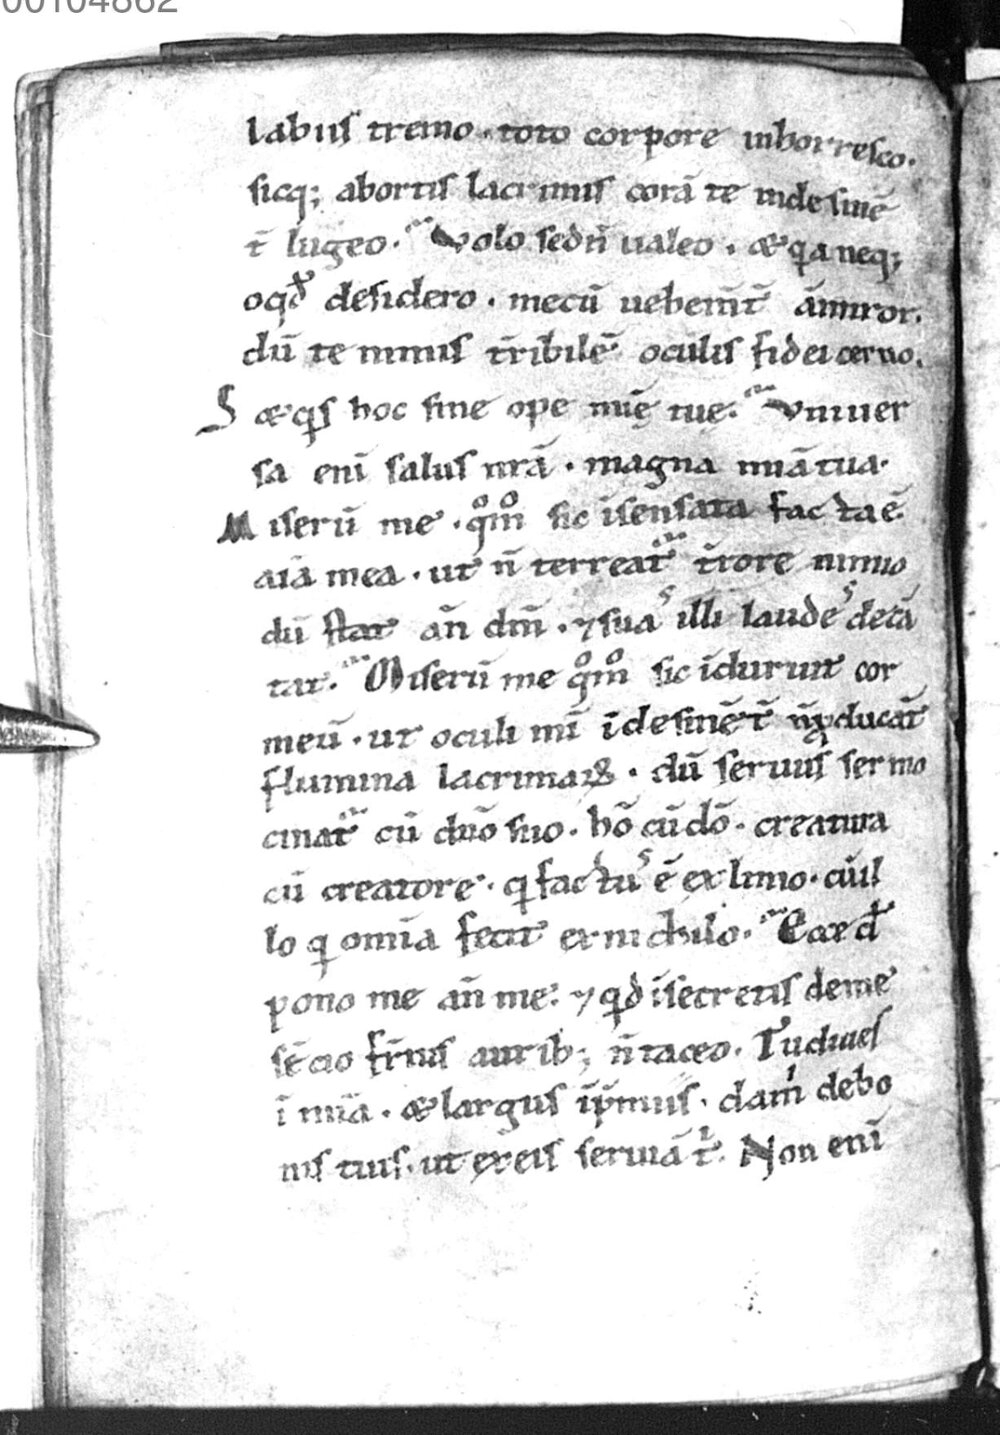 00104862
labiis tremo · toto corpore inhorresco.
sicq; abortis lacrimis corā te indesinē
t̄ lugeo · Volo sed n̄ ualeo · & qa neq;
oqđ desidero · mecū uehem̄t̄ āmiror.
dū te nimis t̄ribilē oculis fidei cerno.
S & qs hoc sine ope mīę tuę. Vniuer
sa enī salus nrā · magna mīa tua.
Miserū me · qm̄ sic īsensata facta ē
aīa mea · ut n̄ terreat̄ t̄rore nimio
dū stat an̄ dm̄ · ⁊ sua illi laude decā
tat. Miserū me qm̄ sic īduruit cor
meū · ut oculi mī īdesinēt̄ n̄ ꝓducāt
flumina lacrimaꝝ · dū seruus sermo
cinat̄ cū dnō suo · hō cū dō · creatura
cū creatore · q factus ē ex limo · cū il
lo q omīa fecit ex nichilo · Ecce đ
pono me an̄ me: ⁊ qđ ī secretis de me
sētio frn̄is aurib; n̄ taceo · Tu diues
ī mīa · & largus ī p̄miis · da m̄ de bo
nis tuis · ut ex eis seruiā t̄. Non enī